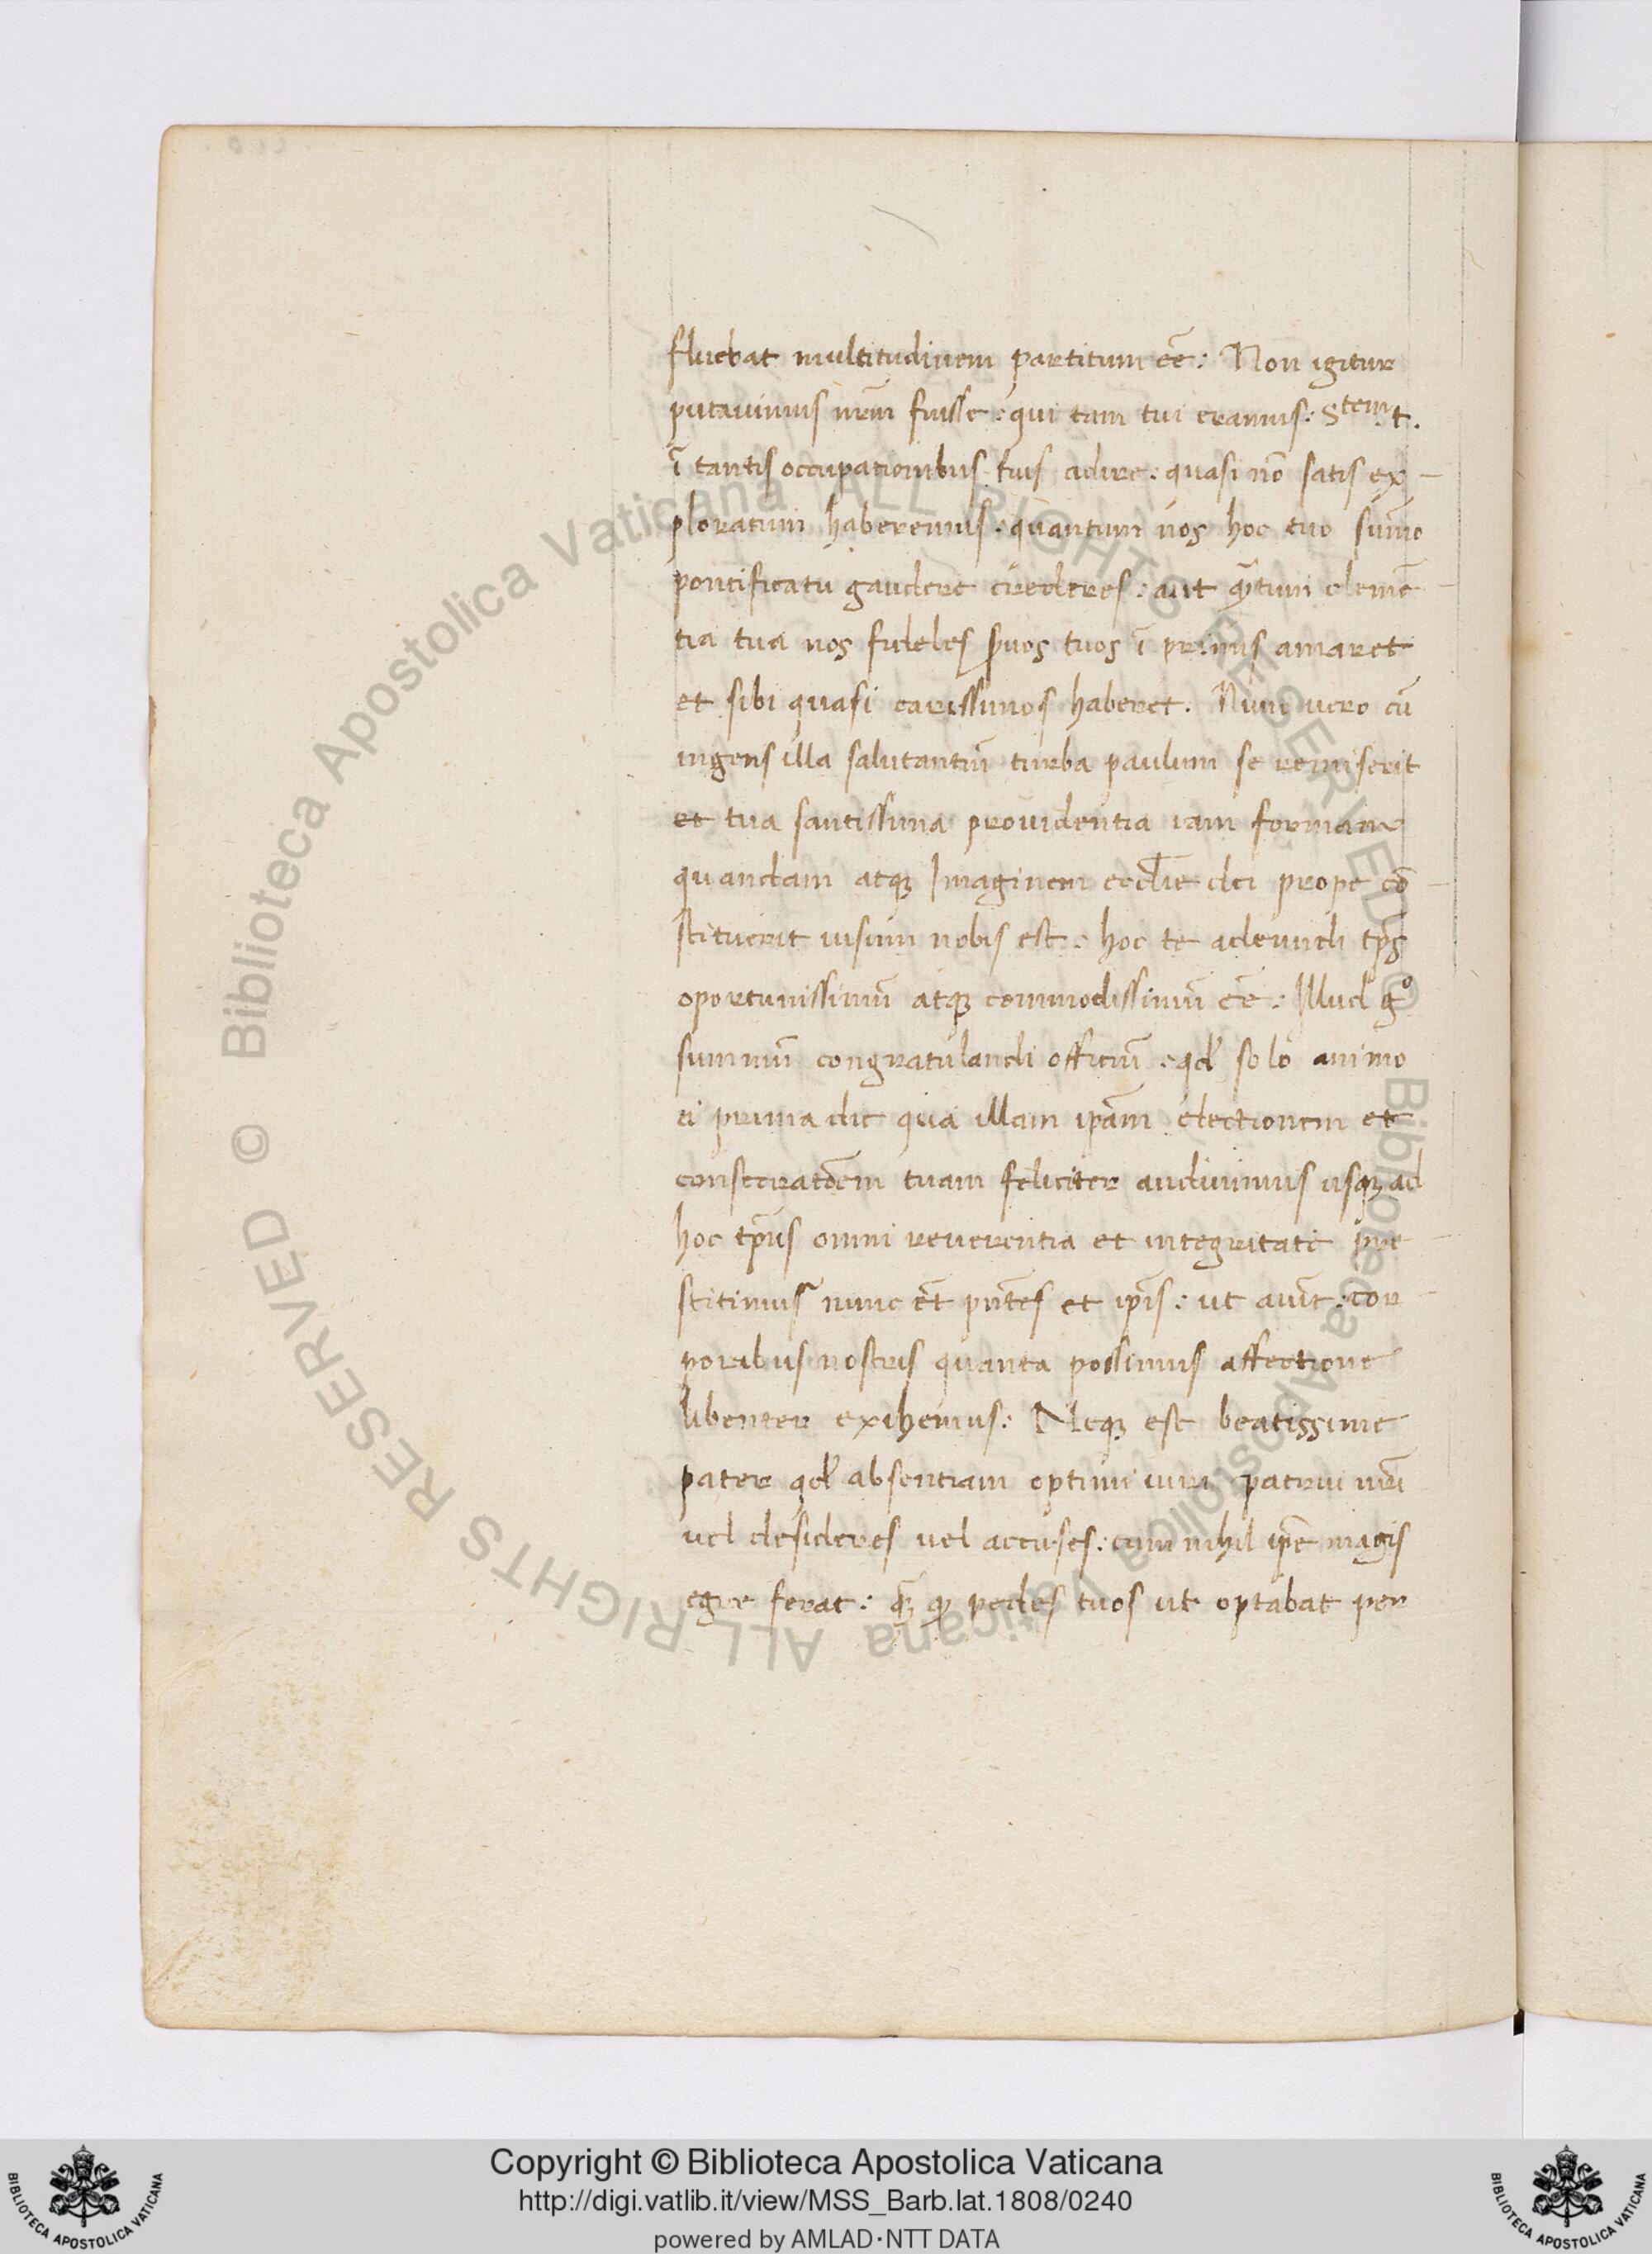 fluebat multitudinem partitum eē: Non igitur
putauimus nr̄m fuisse: qui tam tui eramus: Stem t.
ī tantis occupationibus tuis adire: quasi nō satis ex-
ploratum haberemus: quantum nos hoc tuo sūmo
pontificatu gaudere crederes: aut qͣtum clemē-
tia tua nos fideles s̄uos tuos ī primis amaret
et sibi quasi carissimos haberet. Nunc uero cū
ingens illa salutantiū turba paulum se remiserit
et tua santissima prouidentia iam formam
quandam atqꝫ Imaginem eccl̄ie dei prope cō-
stituerit uisum nobis est: hoc te adeundi tp̄s
oportunissimū atqꝫ commodissimū eē: Illud gͦ
summū congratulandi officiū: qd̓ solo animo
a prima die qua illam ip̄am electionem et
consecratōem tuam feliciter audiuimus usqꝫ ad
hoc tp̄us omni reuerentia et integritate pre-
stitimus nunc ēt pn̄tes et ip̄is: ut aiūt: cor-
poribus nostris quanta possimus affectione
libenter exihemus: Neqꝫ est beatissime
pater qd̓ absentiam optimi uiri patrui nr̄i
uel desideres uel accuses: cum nihil ip̄e magis
egre ferat: qͣꝫ qꝫ pedes tuos ut optabat per
Copyright © Biblioteca Apostolica Vaticana
http://digi.vatlib.it/view/MSS_Barb.lat.1808/0240
powered by AMLAD·NTT DATA
© Biblioteca Apostolica Vaticana ALL RIGHTS RESERVED
© Biblioteca Apostolica Vaticana ALL RIGHTS RESERVED
BIBLIOTECA APOSTOLICA VATICANA
BIBLIOTECA APOSTOLICA VATICANA